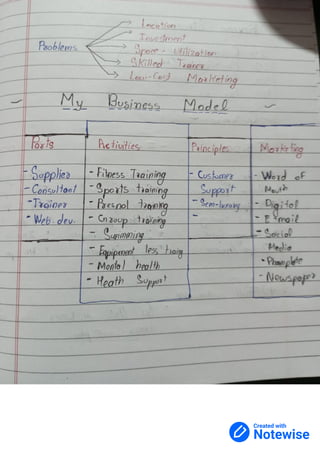 Location
Investment
Problems
Space - Utilization
Skilled Trainer
Low-Cost Marketing
My Business Model
Parts
Activities
Principles
Marketing
- Supplier
- Consultant
- Trainer
- Web dev.
- Fitness Training
- Sports training
- Group training
- Swimming
- Equipment less
- Mental health
- Heath Support
- Customer
Support
-
- Word of
Mouth
- Digital
- E-mail
- Social
Media
- Newspaper
Created with
Notewise